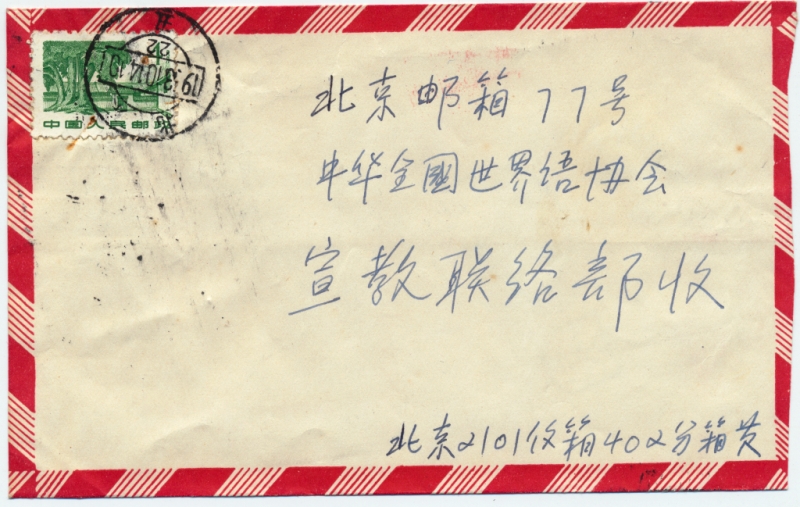 中国人民邮政
北京邮箱77号
中华全國世界语协会
宣教联络部收
北京2101信箱402分箱黄